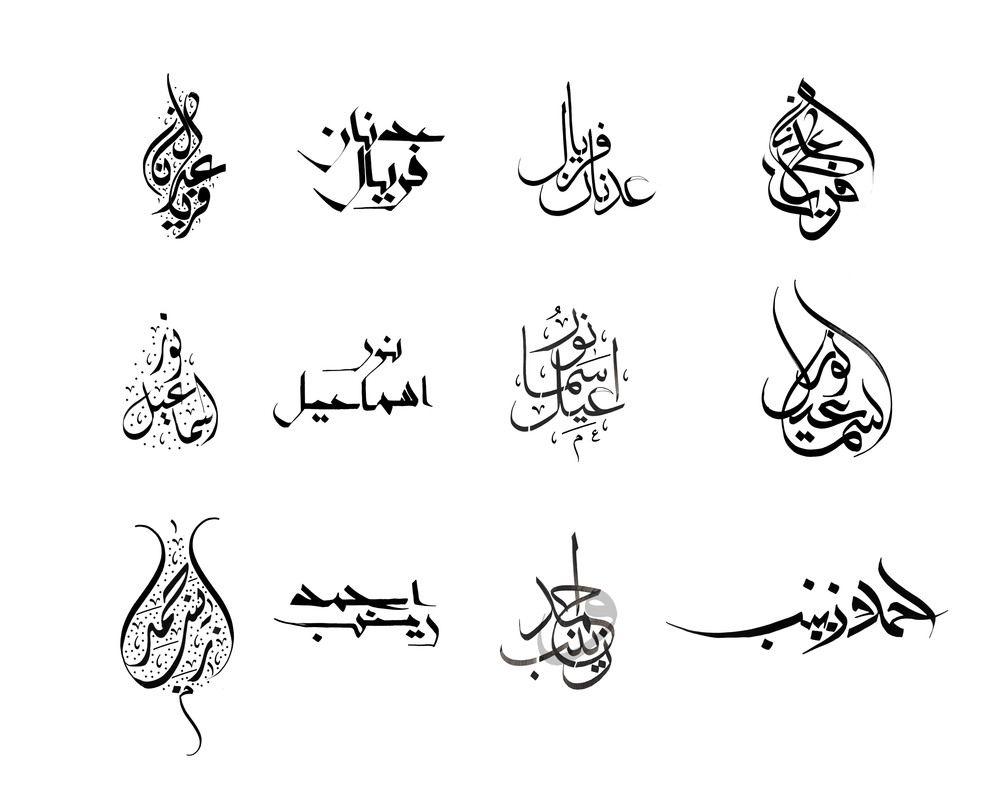 عدنان
فريال
عدنان
فريال
فريال
عدنان
عدنان
فريال
نور
اسماعيل
نور
اسماعيل
نور
اسما
عيل
نور
اسماعيل
احمد
زينب
احمد
زينب
احمد
زينب
احمد و زينب